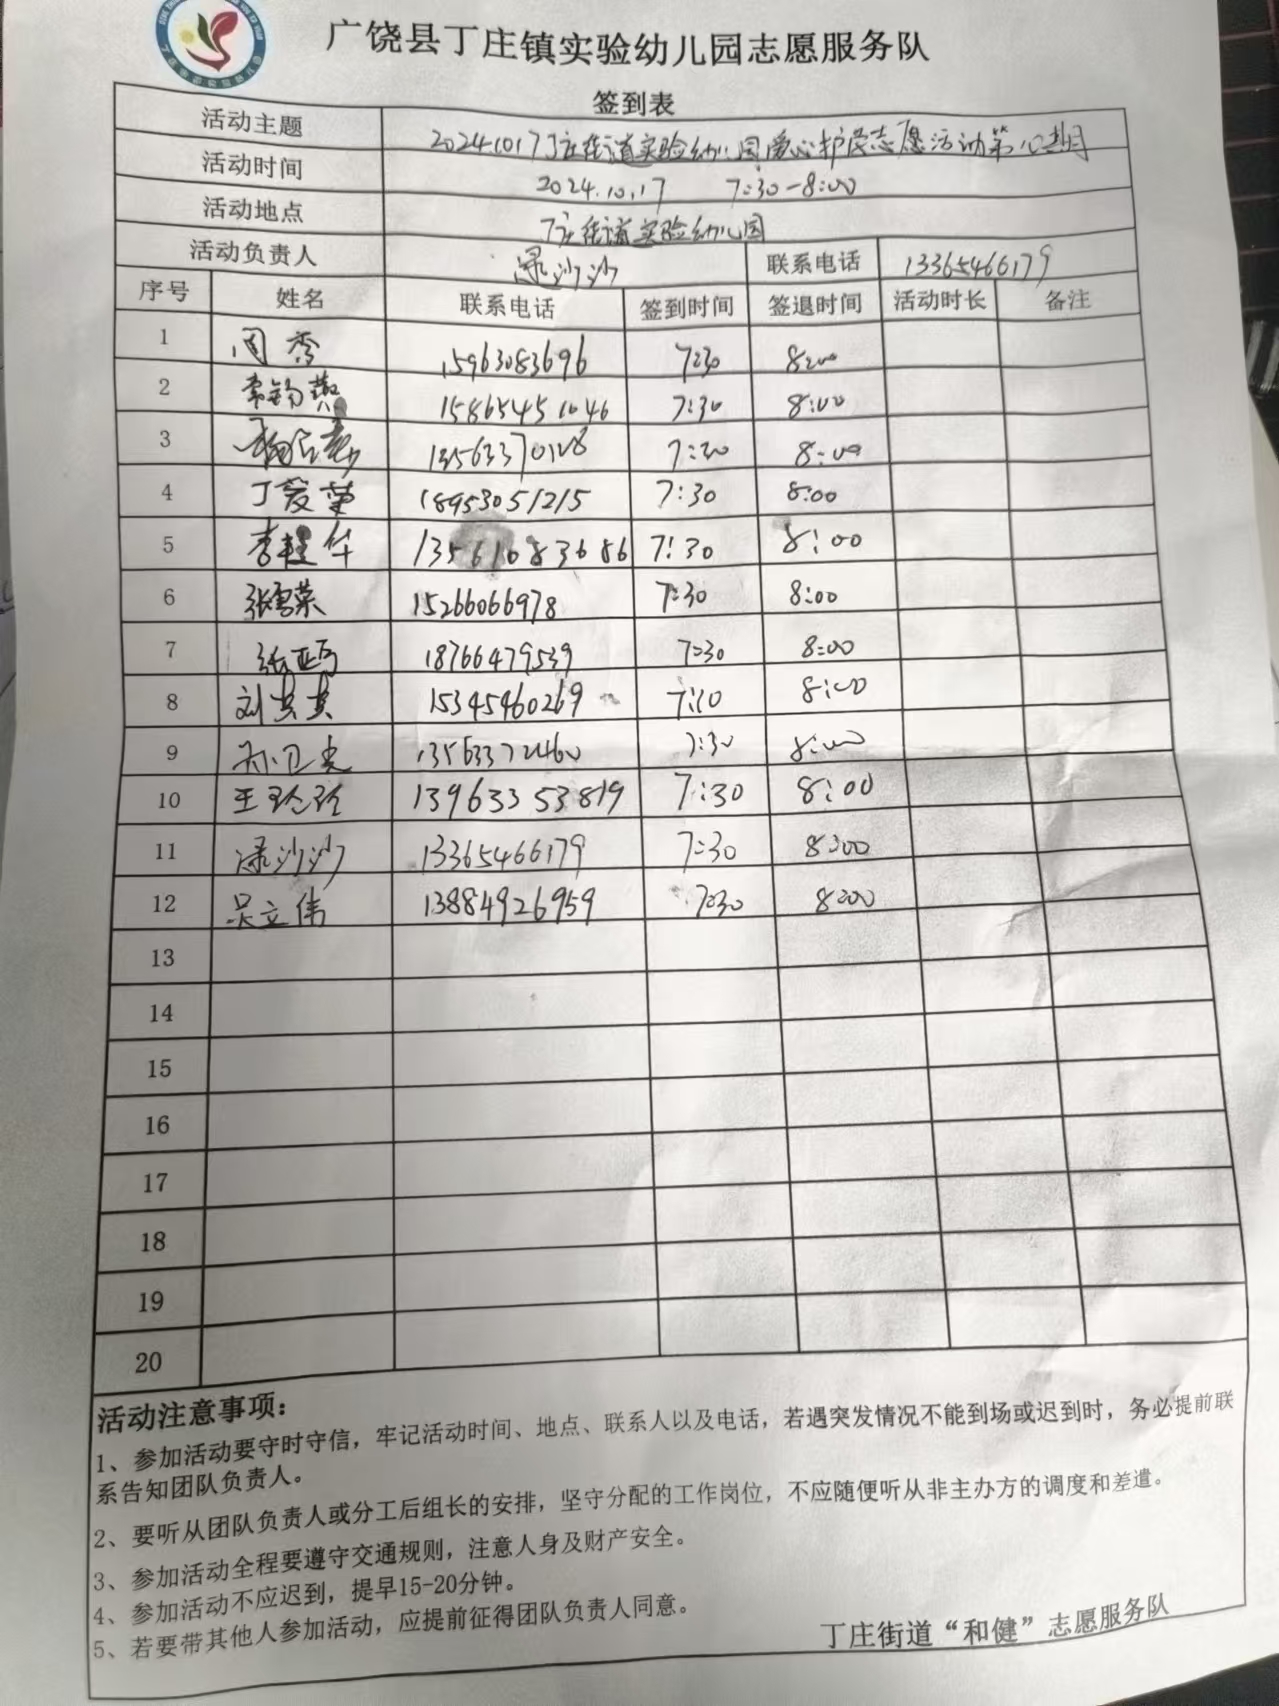 广饶县丁庄镇实验幼儿园志愿服务队
签到表
活动主题 20241017丁庄街道实验幼儿园爱心护学志愿活动第
活动时间 2024.10.17 7:30-8:00
活动地点 丁庄街道实验幼儿园
活动负责人 沙沙 联系电话 13365466179
序号 姓名 联系电话 签到时间 签退时间 活动时长 备注
1 周秀 15963083696 7:30 8:00
2 15865451046 7:30 8:00
3 7:30 8:00
4 丁爱菊 18953051215 7:30 8:00
5 李桂华 13561083686 7:30 8:00
6 张雪菜 15266066978 7:30 8:00
7 18766479539 7:30 8:00
8 刘英英 15345460269 7:10 8:00
9 孙卫光 13563372460 7:30 8:00
10 王玲玲 13963353819 7:30 8:00
11 沙沙 13365466179 7:30 8:00
12 吴立伟 13884926959 7:30 8:00
13
14
15
16
17
18
19
20
活动注意事项：
1、参加活动要守时守信，牢记活动时间、地点、联系人以及电话，若遇突发情况不能到场或迟到时，务必提前联
系告知团队负责人。
2、要听从团队负责人或分工后组长的安排，坚守分配的工作岗位，不应随便听从非主办方的调度和差遣。
3、参加活动全程要遵守交通规则，注意人身及财产安全。
4、参加活动不应迟到，提早15-20分钟。
5、若要带其他人参加活动，应提前征得团队负责人同意。
丁庄街道“和健”志愿服务队